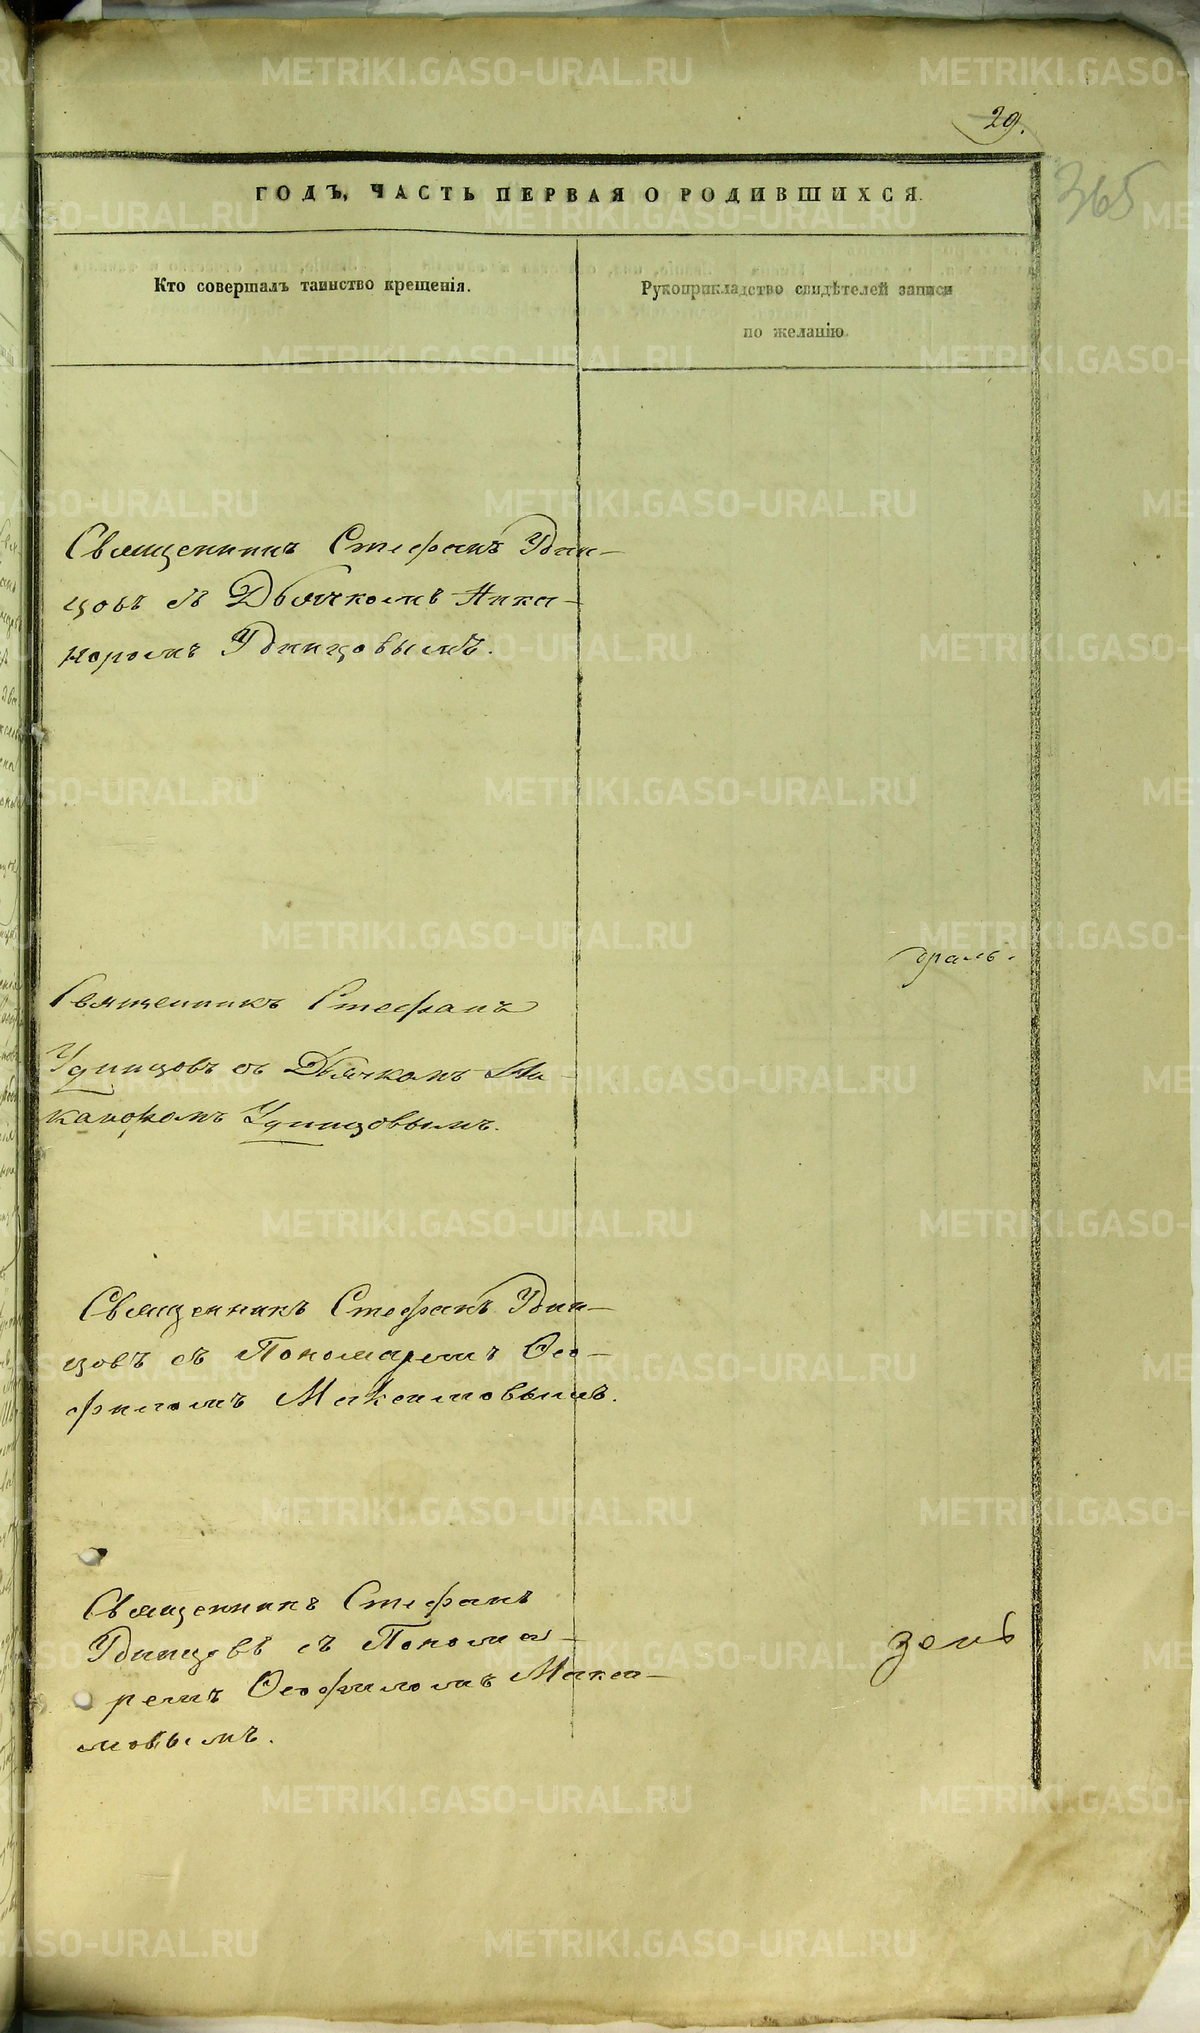 29.
365
ГОДЪ, ЧАСТЬ ПЕРВАЯ О РОДИВШИХСЯ.
Кто совершалъ таинство крещенія.
Рукоприкладство свидѣтелей записи
по желанію.
Священникъ Стефанъ Удин-
цовъ съ Дьячкомъ Ника-
норомъ Удинцовымъ.
Священникъ Стефанъ
Удинцовъ съ Дьячкомъ Ни-
каноромъ Удинцовымъ.
Священникъ Стефанъ Удин-
цовъ съ Пономаремъ Ѳео-
филомъ Максимовымъ.
Священникъ Стефанъ
Удинцовъ съ Понома-
ремъ Ѳеофиломъ Макси-
мовымъ.
METRIKI.GASO-URAL.RU